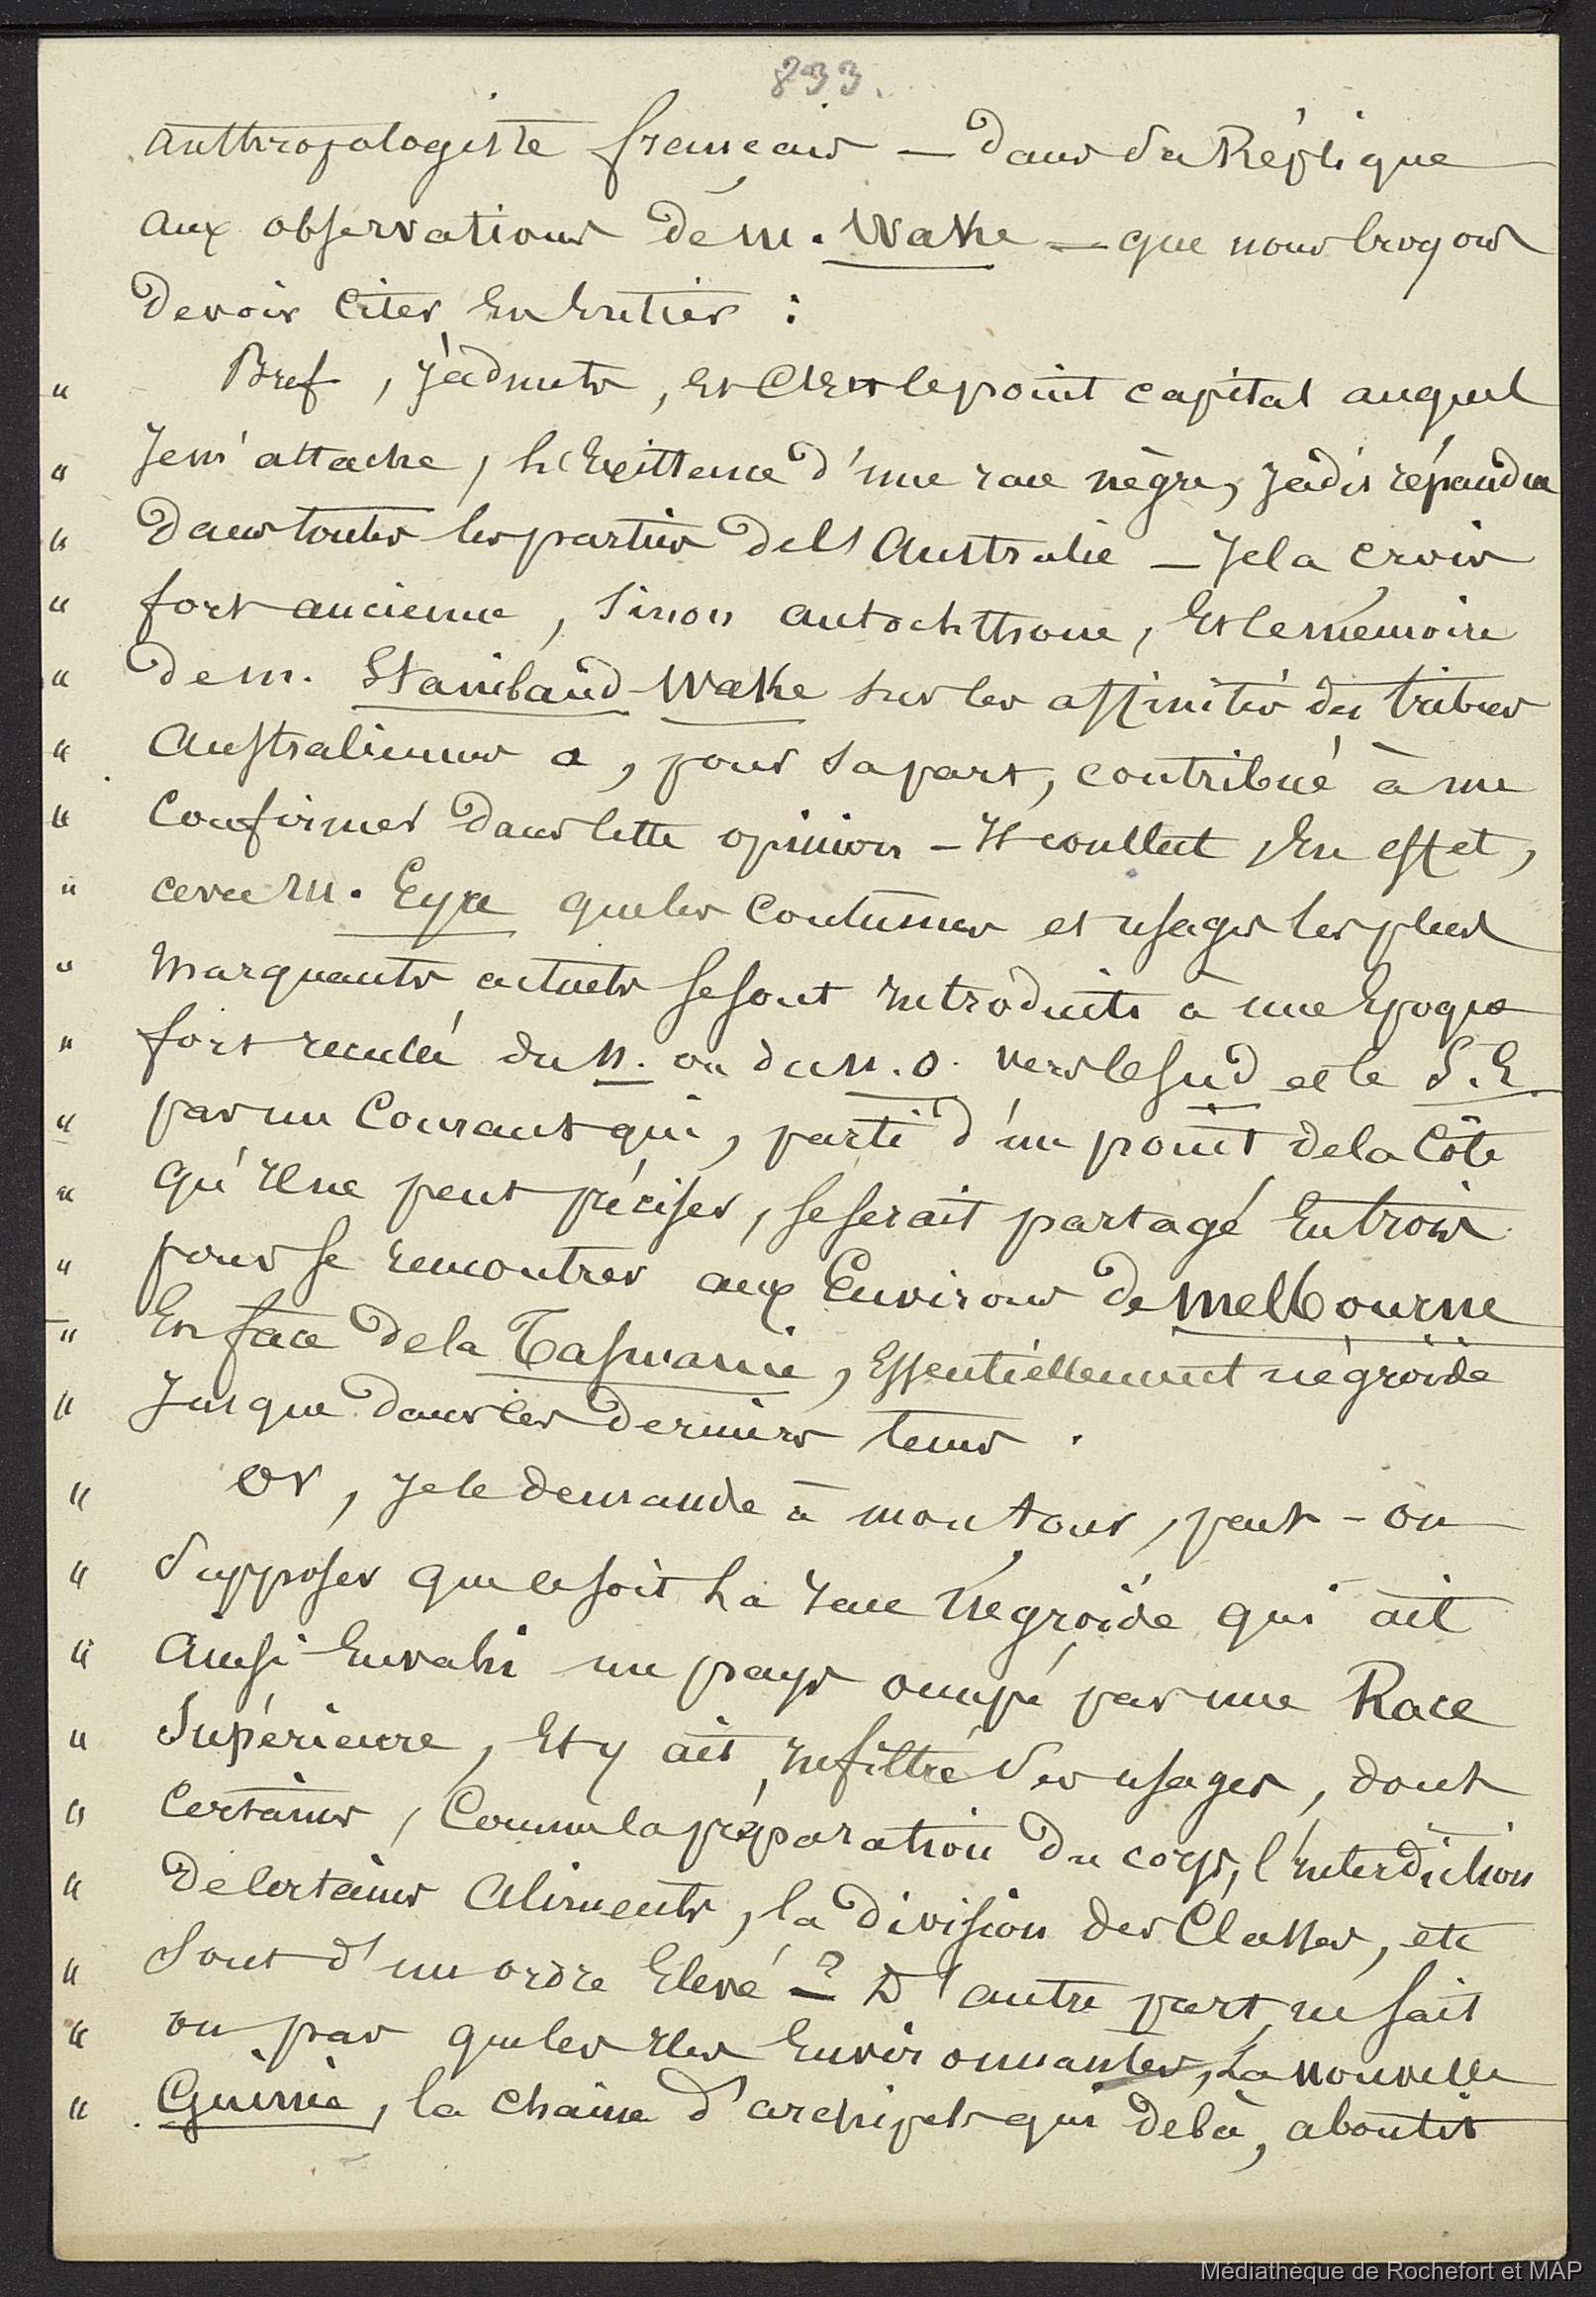 833.
anthropologiste français — dans sa Réplique
aux observations de m. Wake — que nous croyons
devoir citer en entier :
" Bref, j'admets, et c'est le point capital auquel
" Je m'attache, l'existence d'une race nègre, jadis répandue
" dans toutes les parties de l'Australie — je la crois
" fort ancienne, sinon autochthone, et le mémoire
" de m. Staniland-Wake sur les affinités des tribus
" Australiennes a, pour sa part, contribué à me
" Confirmer dans cette opinion — Il conclut, en effet,
" avec M. Eyre que les coutumes et usages les plus
" marquants actuels se sont introduits à une époque
" fort reculée du N. ou du N.O. vers le sud et le S.E
" par un Courant qui, parti d'un point de la Côte
" qu'il ne peut préciser, se serait partagé en trois
" pour se rencontrer aux Environs de Melbourne
" En face de la Tasmanie, Essentiellement négroïde
" Jusque dans les derniers tems.
" Or, je le demande à mon tour, peut-on
" Supposer que ce soit la race Négroïde qui ait
" Ainsi Envahi un pays occupé par une Race
" Supérieure, et y ait infiltré des usages, dont
" Certains, Comme la préparation du corps, l'interdiction
" de certains Aliments, la division des Classes, etc
" Sont d'un ordre Elevé — ? D'autre part, ne sait
" on pas que les Iles Environnantes, la Nouvelle
" Guinée, la chaine d'archipels qui delà, aboutit
Médiathèque de Rochefort et MAP